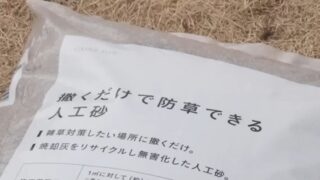 撒くだけで防草できる
人工砂
雑草対策したい場所に撒くだけ。
焼却灰をリサイクルし無害化した人工砂。
1㎡に対して(約)